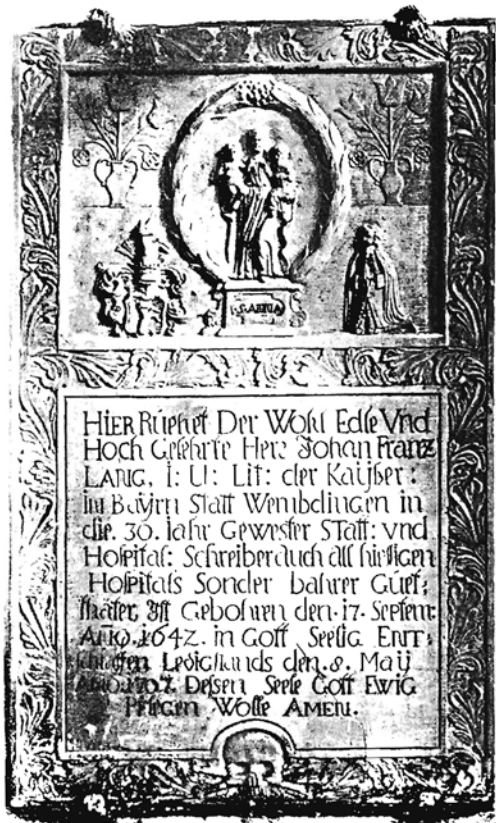 S. ANNA
HIER Ruehet Der Wohl Edle Vnd
Hoch Gelehrte Herr Johan Franz
LANG, I: U: Lit: der Kayßer:
im Bayrn Statt Wembdingen in
die. 30. Jahr Gewester STatt: vnd
Hospital: Schreiber auch all hießigen
Hospitals Sonder bahrer Guet:
thäter, Ist Gebohren den. 17. Septem:
ANNO. 1642. in Gott Seelig Ent:
schlaffen Ledigstands den. 8. May
ANNO. 1707. Dessen Seele Gott Ewig
Pflegen Wolle AMEN.